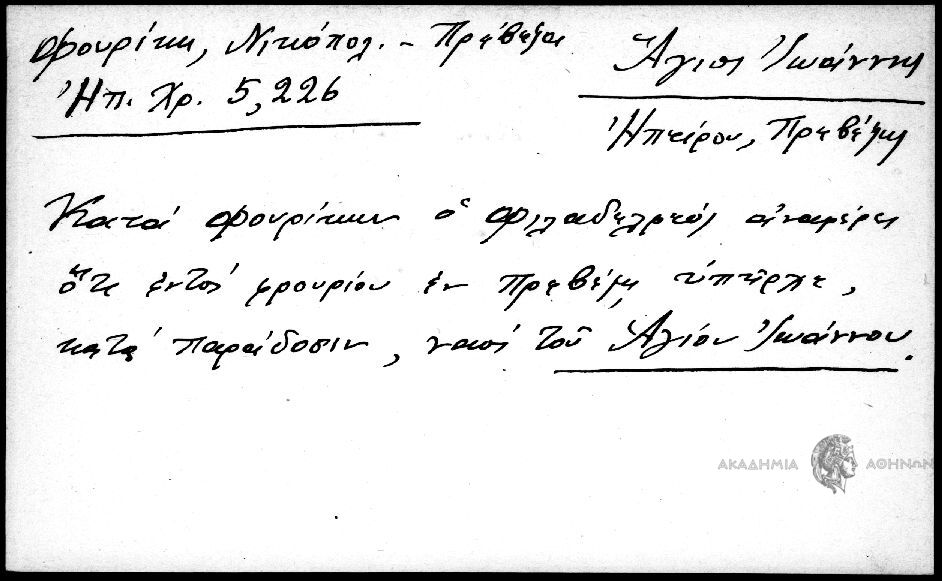 Φουρίκη, Νικόπολ. - Πρέβεζα
Ἠπ. Χρ. 5,226
Ἅγιος Ἰωάννης
Ἠπείρου, Πρεβέζης
Κατά Φουρίκην ὁ Φιλαδελφεύς ἀναφέρει
ὅτι ἐντός φρουρίου ἐν Πρεβέζῃ ὑπῆρχε,
κατά παράδοσιν, ναός τοῦ Ἁγίου Ἰωάννου.
ΑΚΑΔΗΜΙΑ ΑΘΗΝΩΝ